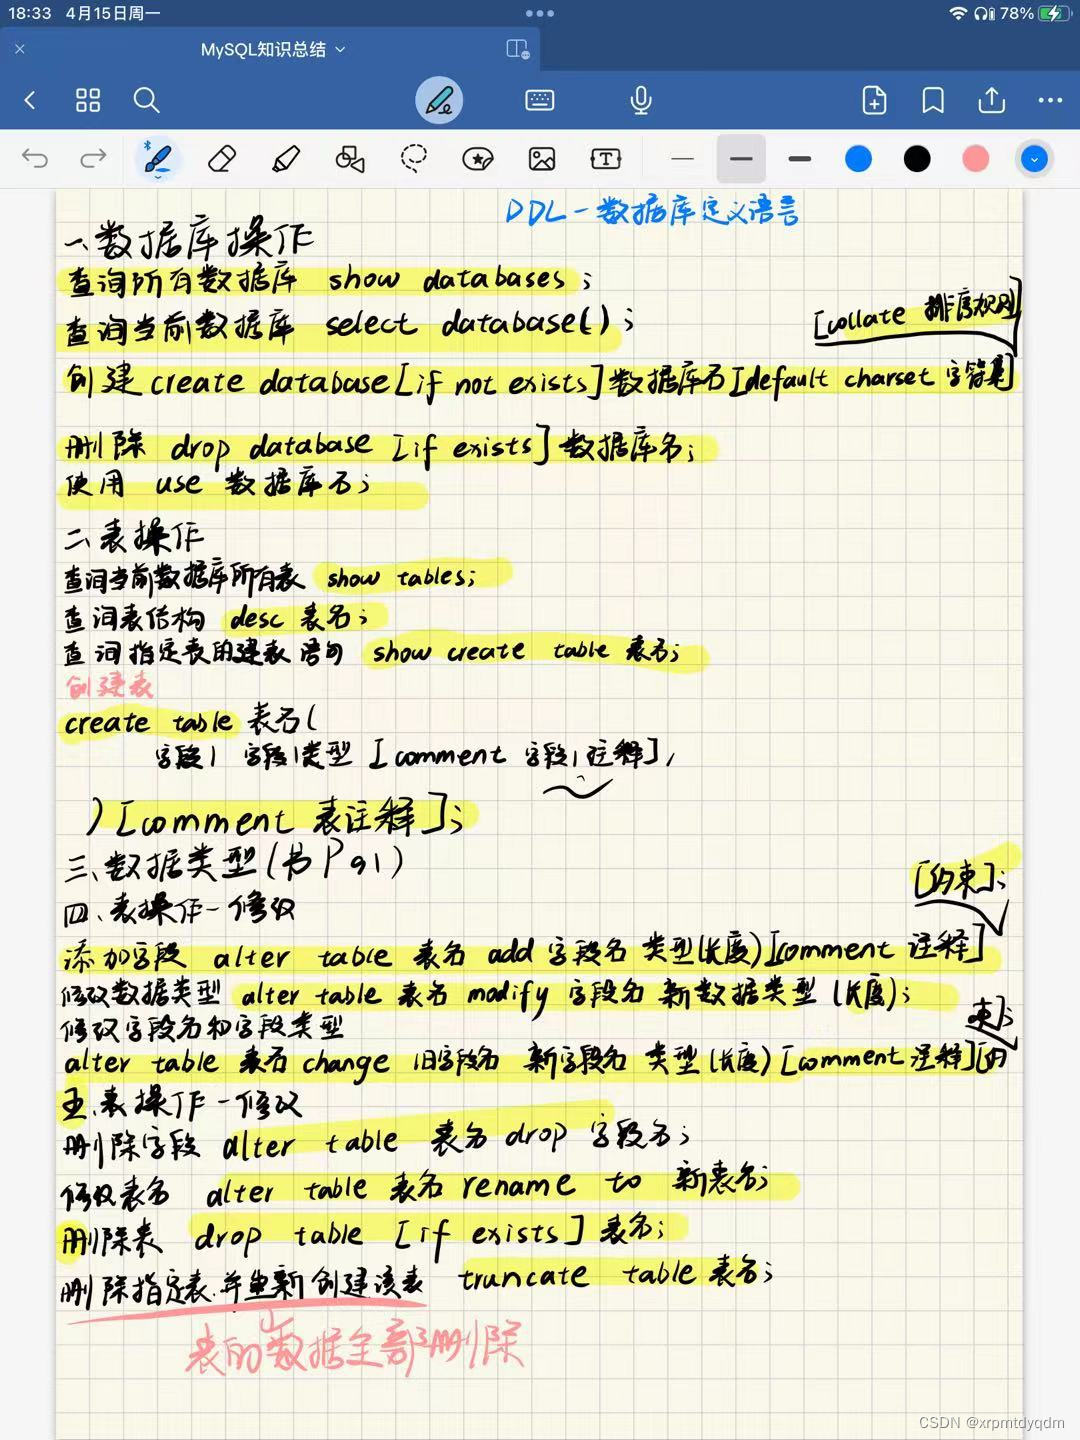 18:33 4月15日周一
78%
MySQL知识总结
DDL-数据库定义语言
一、数据库操作
查询所有数据库 show databases;
查询当前数据库 select database();
[collate 排序规则]
创建 create database[if not exists]数据库名[default charset 字符集]
删除 drop database [if exists]数据库名;
使用 use 数据库名;
二、表操作
查询当前数据库所有表 show tables;
查询表结构 desc 表名;
查询指定表的建表语句 show create table 表名;
创建表
create table 表名(
字段1 字段1类型 [comment 字段1注释],
)[comment 表注释];
三、数据类型(书P91)
四、表操作-修改
[约束];
添加字段 alter table 表名 add 字段名 类型(长度)[comment 注释]
修改数据类型 alter table 表名 modify 字段名 新数据类型(长度);
修改字段名和字段类型
束];
alter table 表名 change 旧字段名 新字段名 类型(长度)[comment 注释][约
五、表操作-修改
删除字段 alter table 表名 drop 字段名;
修改表名 alter table 表名 rename to 新表名;
删除表 drop table [if exists]表名;
删除指定表,并重新创建该表 truncate table 表名;
表的数据全部删除
CSDN @xrpmtdyqdm